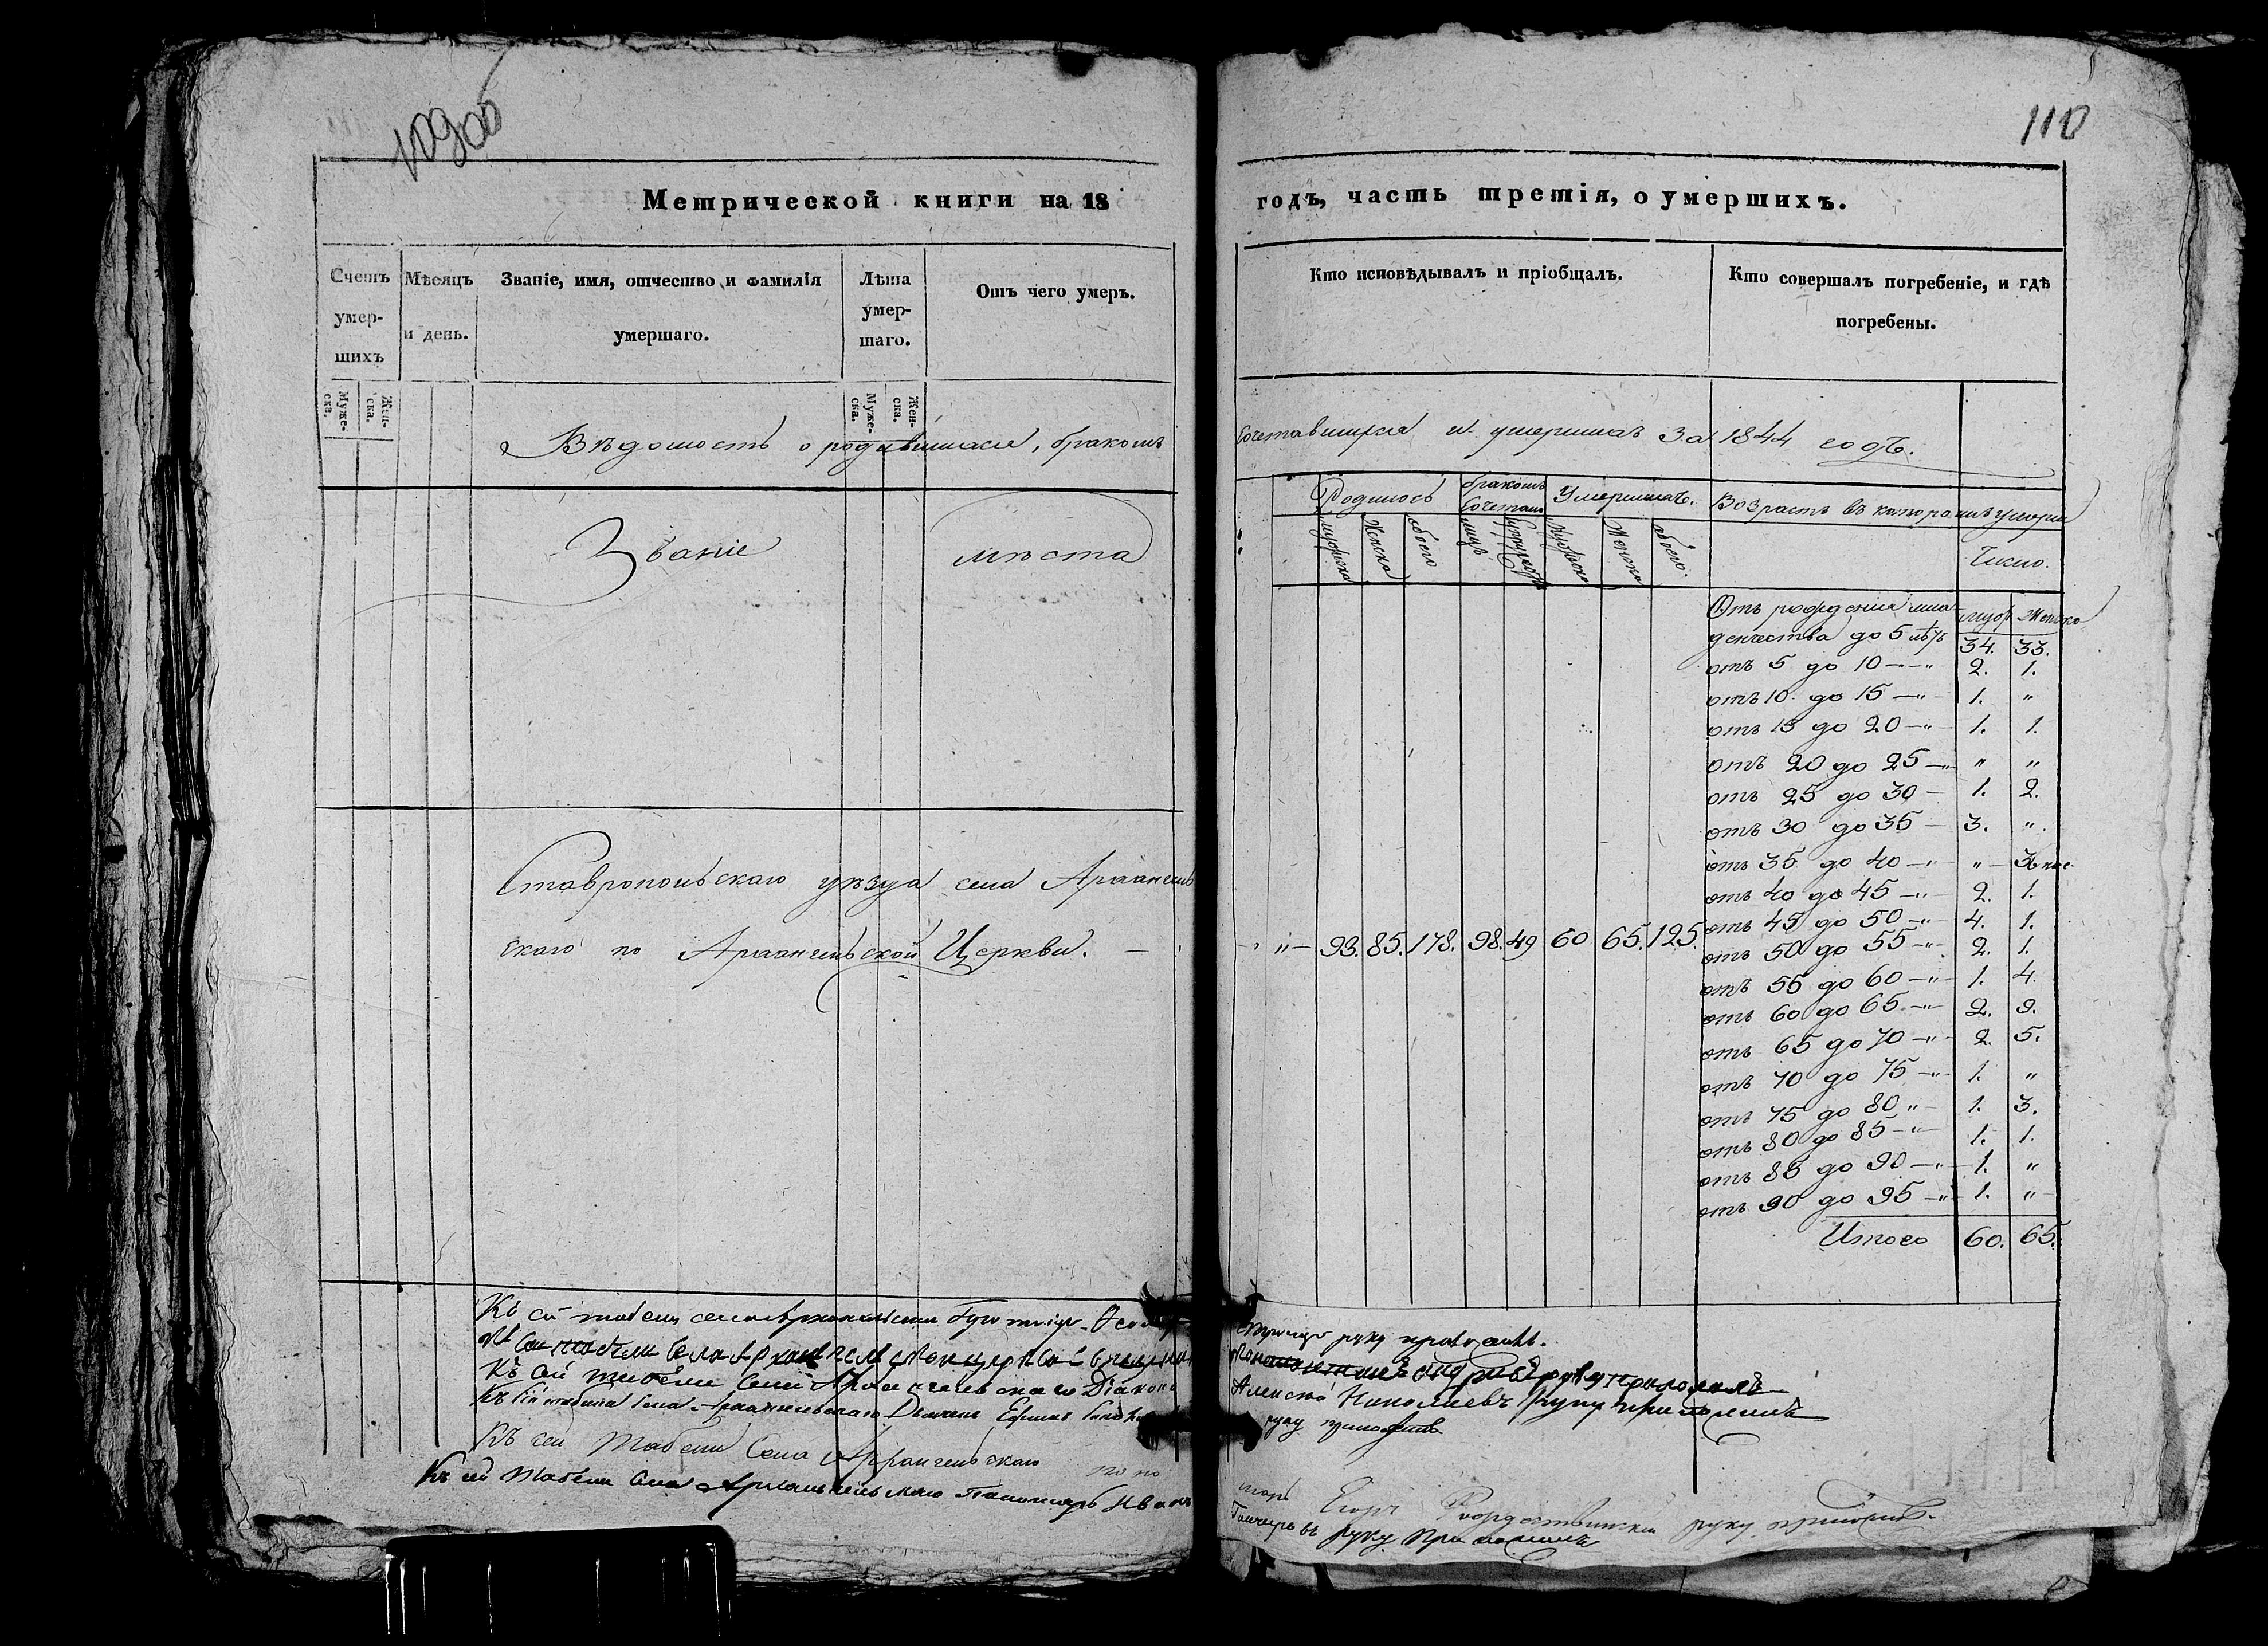 109об
110
Метрической книги на 18 годъ, часть третія, о умершихъ.
Счетъ умер-
шихъ
Муже-
ска.
Жен-
ска.
Мѣсяцъ
и день.
Званіе, имя, отчество и фамилія
умершаго.
Лѣта
умер-
шаго.
Муже-
ска.
Жен-
ска.
Отъ чего умеръ.
Кто исповѣдывалъ и пріобщалъ.
Кто совершалъ погребеніе, и гдѣ
погребены.
Вѣдомость о родившихся, бракомъ сочетавшихся и умершихъ за 1844 годъ.
Званіе мѣста
Родилось
бракомъ
Сочетано
Умершихъ.
Возрастъ въ которомъ умерли
мужеска
Женска
обоего
лицъ
Мужеска
Женска
обоего.
Число.
муж Женско
Отъ рожденія мла-
денчества до 5 лѣтъ 34. 33.
отъ 5 до 10 —„ 2. 1.
отъ 10 до 15 —„— 1. „
отъ 15 до 20 —„— 1. 1.
отъ 20 до 25 —„ „ „
отъ 25 до 30 — 1. 2.
отъ 30 до 35 — 3. „
отъ 35 до 40 —„— „
отъ 40 до 45 —„— 2. 1.
отъ 45 до 50 —„— 4. 1.
отъ 50 до 55 —„— 2. 1.
отъ 55 до 60 —„— 1. 4.
отъ 60 до 65 —„— 2. 9.
отъ 65 до 70 —„— 2. 5.
отъ 70 до 75 —„— 1. „
отъ 75 до 80 „— 1. 3.
отъ 80 до 85 —„— 1. 1.
отъ 85 до 90 —„— 1. „
отъ 90 до 95 —„— 1. „
Итого 60. 65.
Ставропольскаго уѣзда села Архангель
скаго по Архангельской Церкви. — „— 93. 85. 178. 98. 49 60 65. 125.
Къ сей табели руку приложилъ.
Къ сей табели села Архангельской церкви руку приложилъ
Къ сей табели Села Архангельскаго Діаконъ Алексѣй Николаевъ руку приложилъ
Къ сей табели села Архангельскаго Дьячокъ Ефимъ руку приложилъ
Къ сей Табели Села Архангельскаго поно
марь Егоръ Рождественскій руку приложилъ.
Къ сей табели Села Архангельскаго Пономарь Иванъ
руку приложилъ